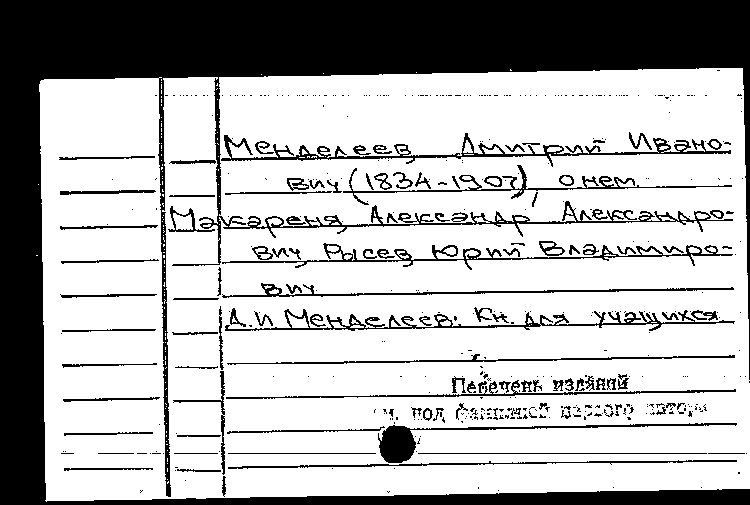 Менделеев, Дмитрий Ивано-
вич (1834-1907), о нем.
Макареня, Александр Александро-
вич, Рысев, Юрий Владимиро-
вич
Д.И. Менделеев: Кн. для учащихся
Перечень изданий
см. под фамилией первого автора